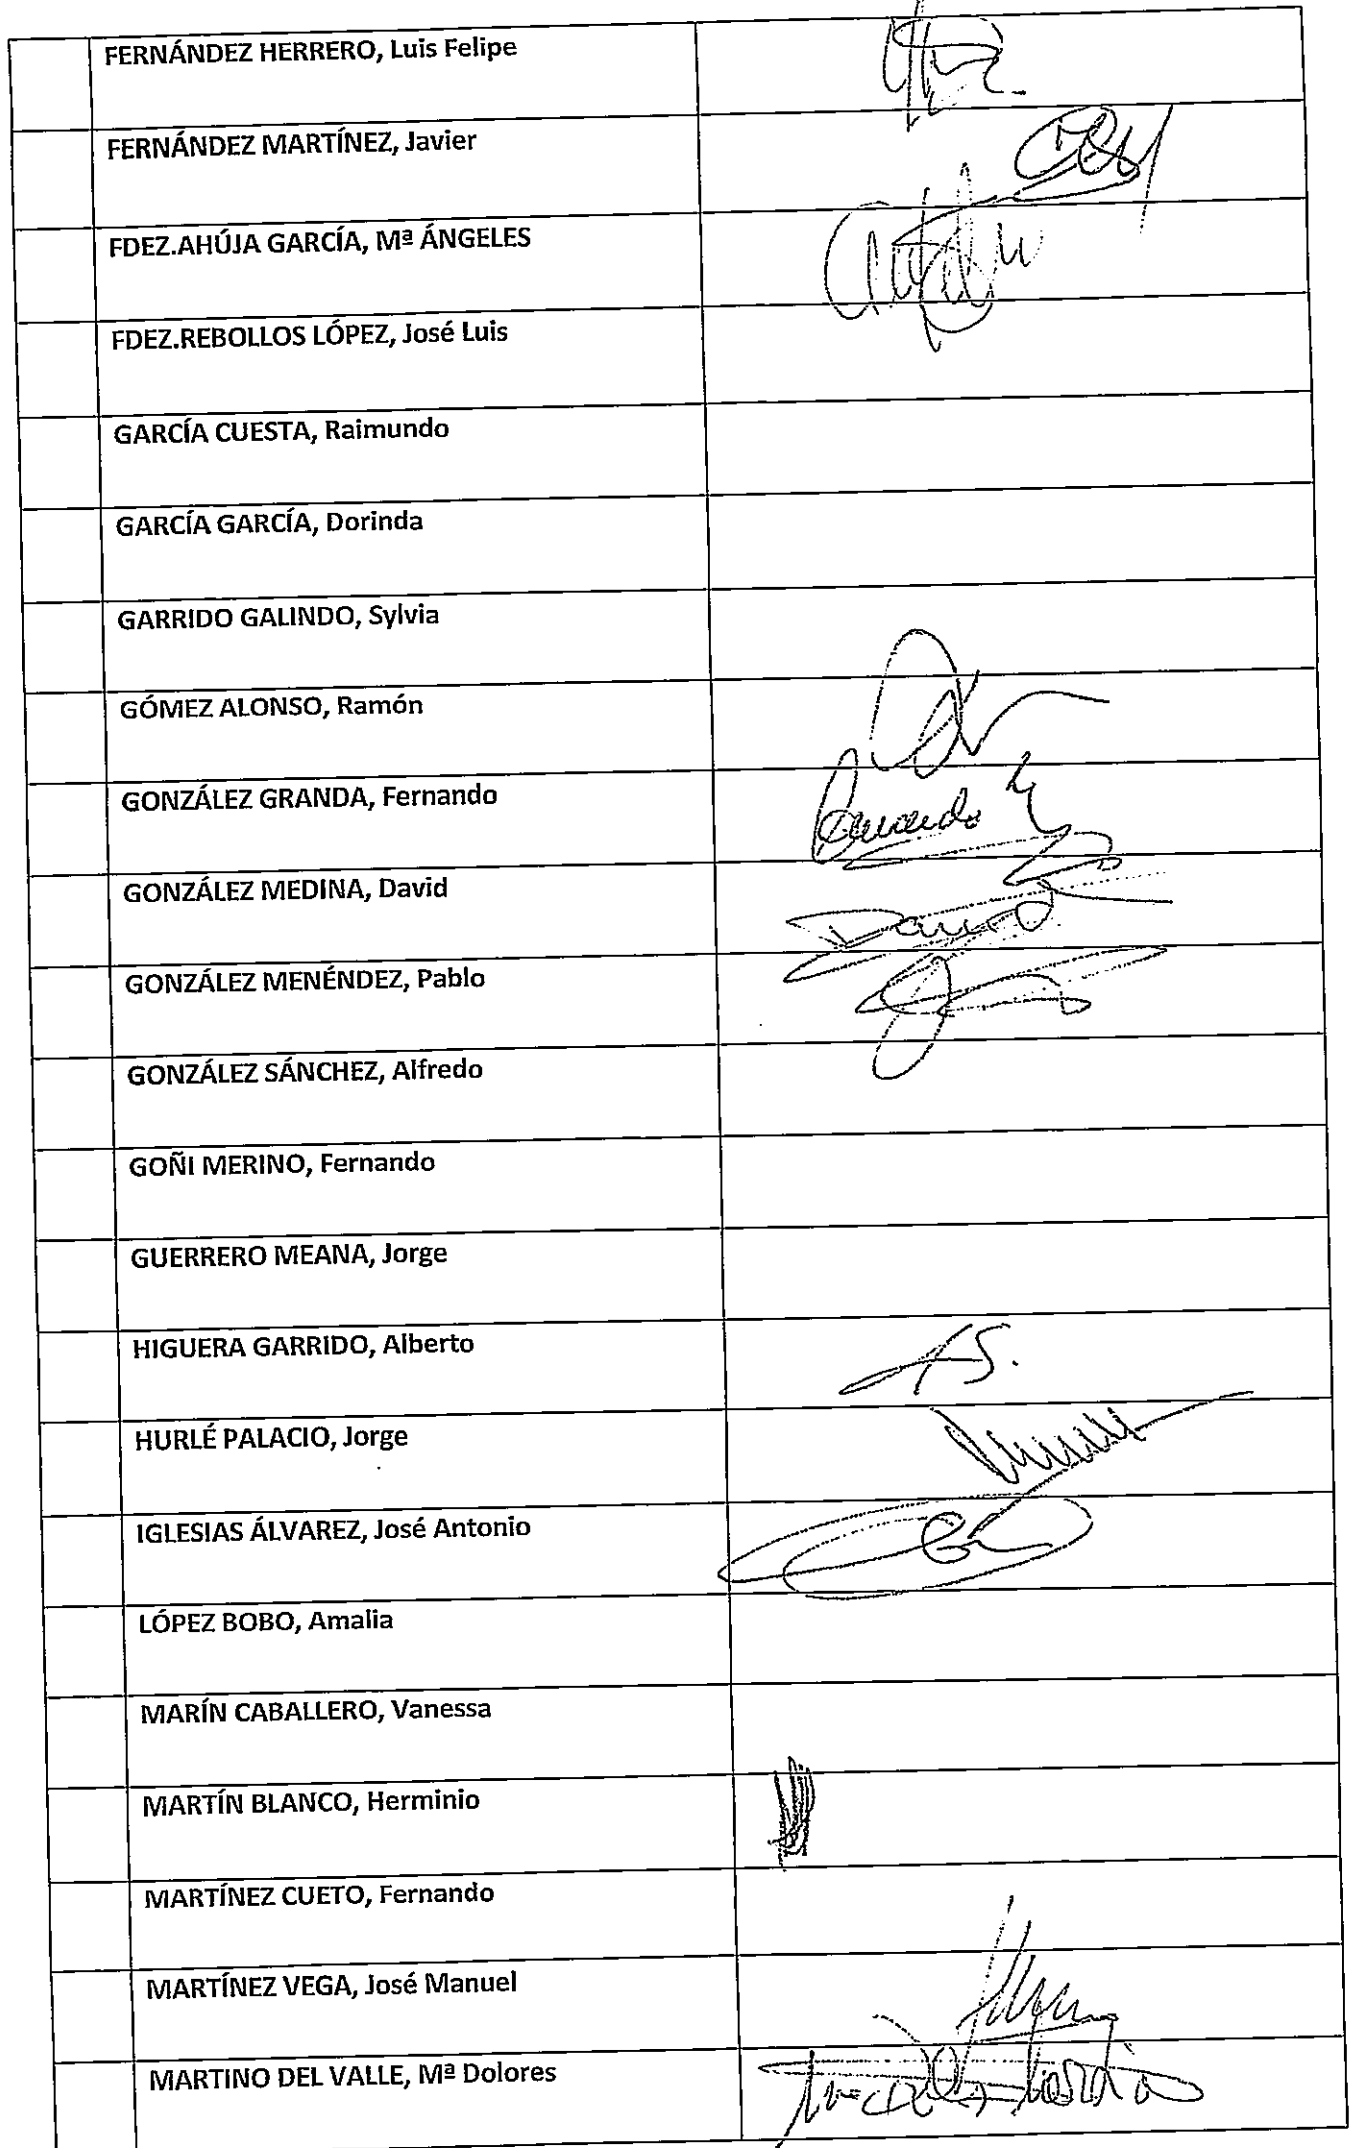 FERNÁNDEZ HERRERO, Luis Felipe
FERNÁNDEZ MARTÍNEZ, Javier
FDEZ.AHÚJA GARCÍA, Mª ÁNGELES
FDEZ.REBOLLOS LÓPEZ, José Luis
GARCÍA CUESTA, Raimundo
GARCÍA GARCÍA, Dorinda
GARRIDO GALINDO, Sylvia
GÓMEZ ALONSO, Ramón
GONZÁLEZ GRANDA, Fernando
GONZÁLEZ MEDINA, David
GONZÁLEZ MENÉNDEZ, Pablo
GONZÁLEZ SÁNCHEZ, Alfredo
GOÑI MERINO, Fernando
GUERRERO MEANA, Jorge
HIGUERA GARRIDO, Alberto
HURLÉ PALACIO, Jorge
IGLESIAS ÁLVAREZ, José Antonio
LÓPEZ BOBO, Amalia
MARÍN CABALLERO, Vanessa
MARTÍN BLANCO, Herminio
MARTÍNEZ CUETO, Fernando
MARTÍNEZ VEGA, José Manuel
MARTINO DEL VALLE, Mª Dolores